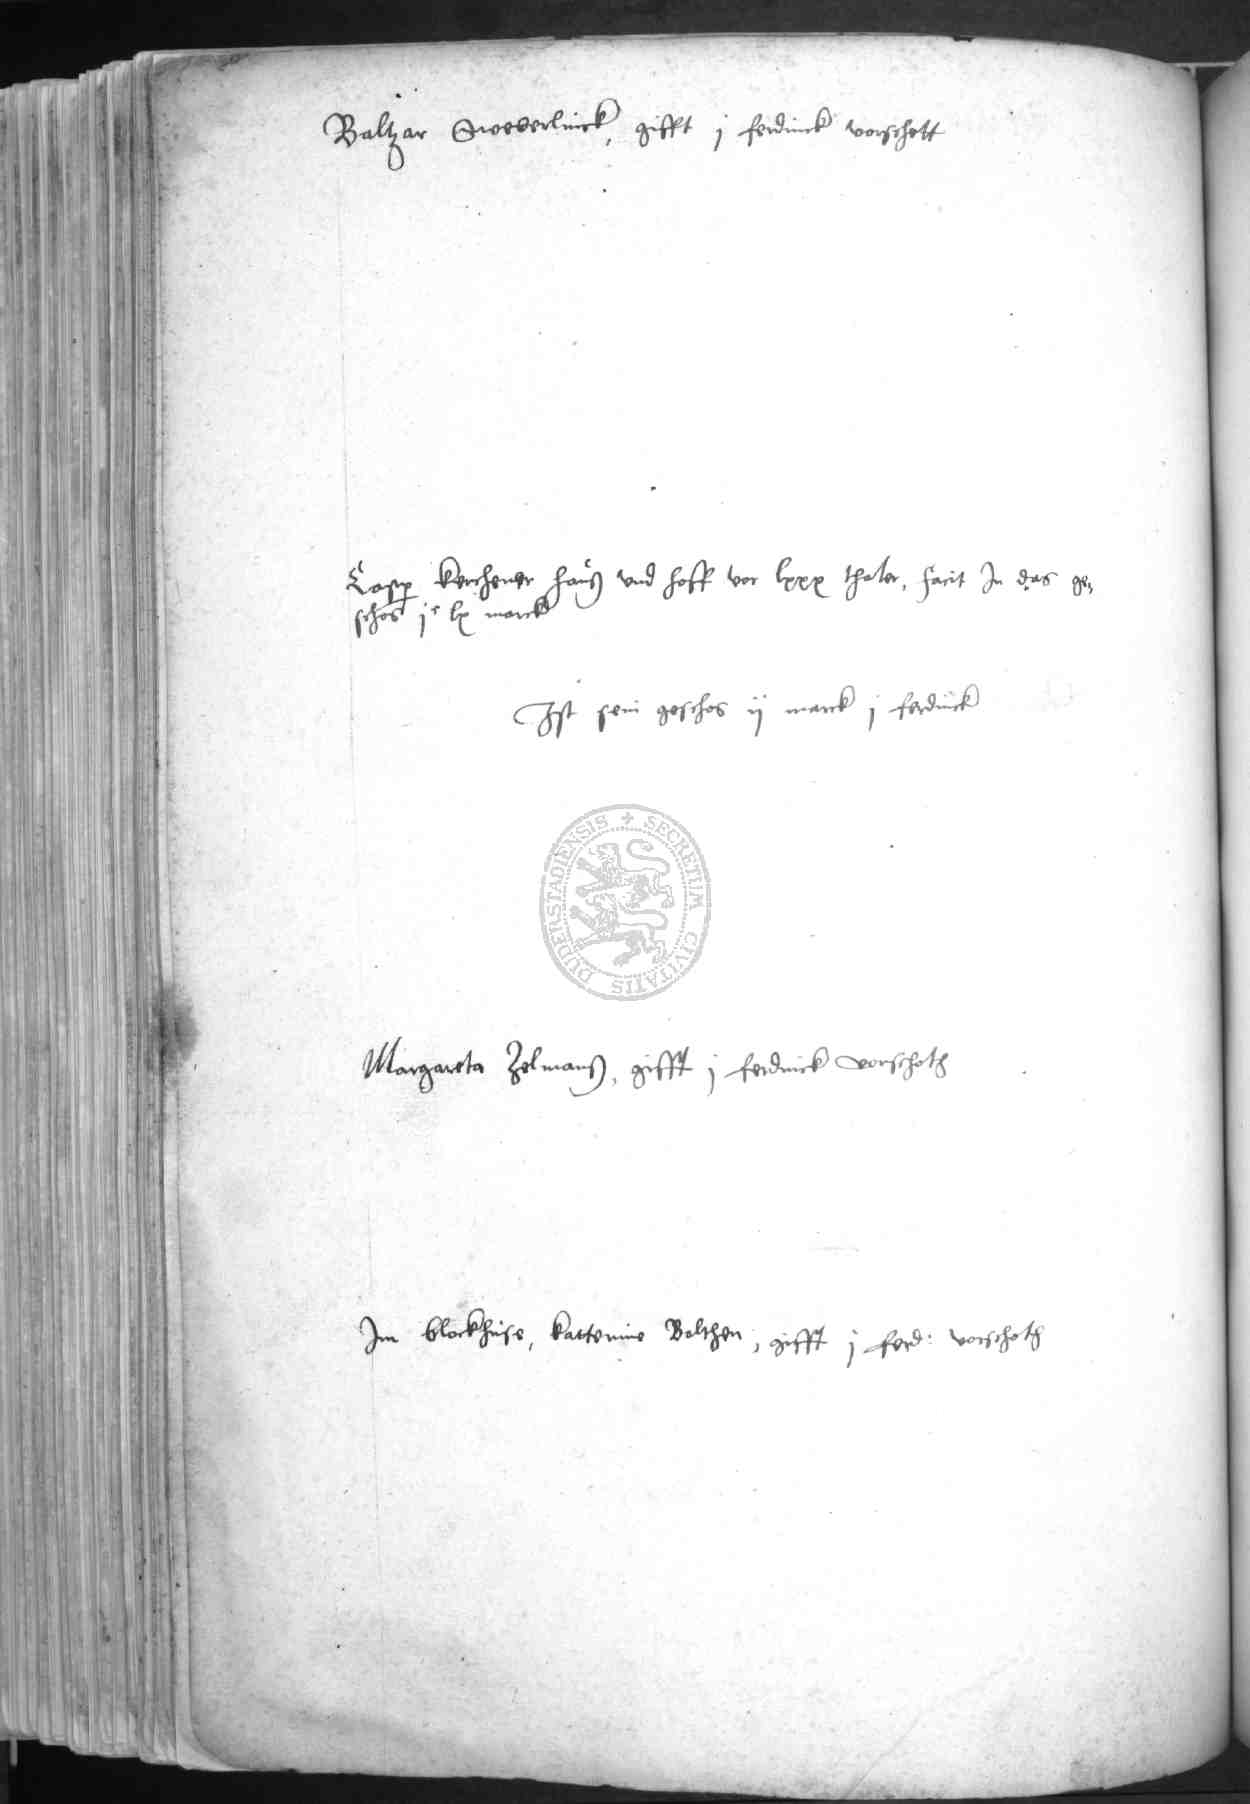 Baltzar Sweverlinck, gifft j ferdinck vorschott
Casp kerchener hauß vnd hoff vor lxxx thaler, facit In das ge-
schos jc lx marck
Ist sein geschos ij marck j ferdinck
DUDERSTADIENSIS + SECRETUM CIVITATIS
Margareta Zelmanß, gifft j ferdinck vorschoth
Im blockhuse, kattorine Bolthen, gifft j ferd: vorschoth